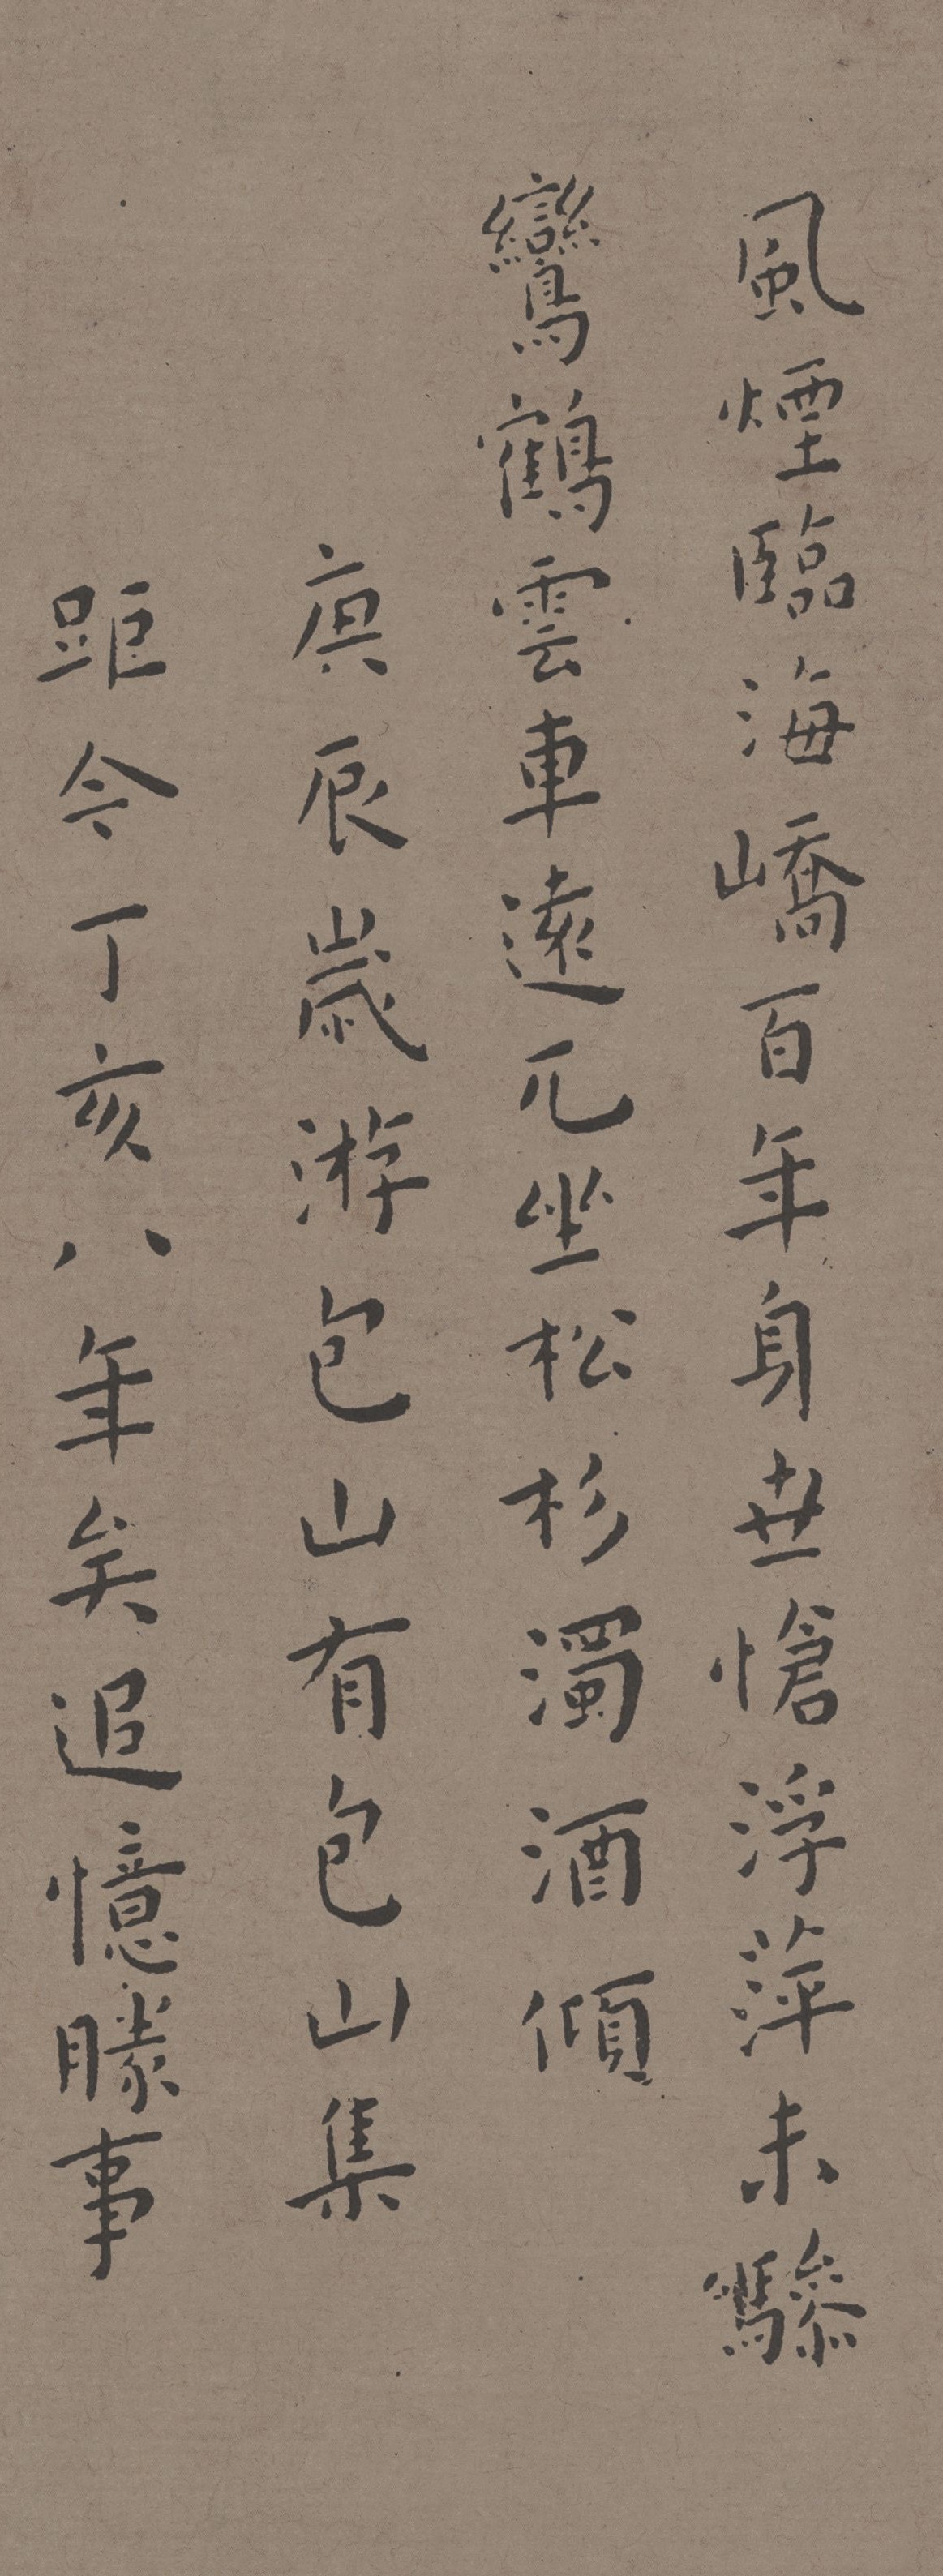 風煙臨海嶠百年身世愴浮萍未驂
鸞鶴雲車遠兀坐松杉濁酒傾
庚辰歲游包山有包山集
距今丁亥八年矣追憶勝事